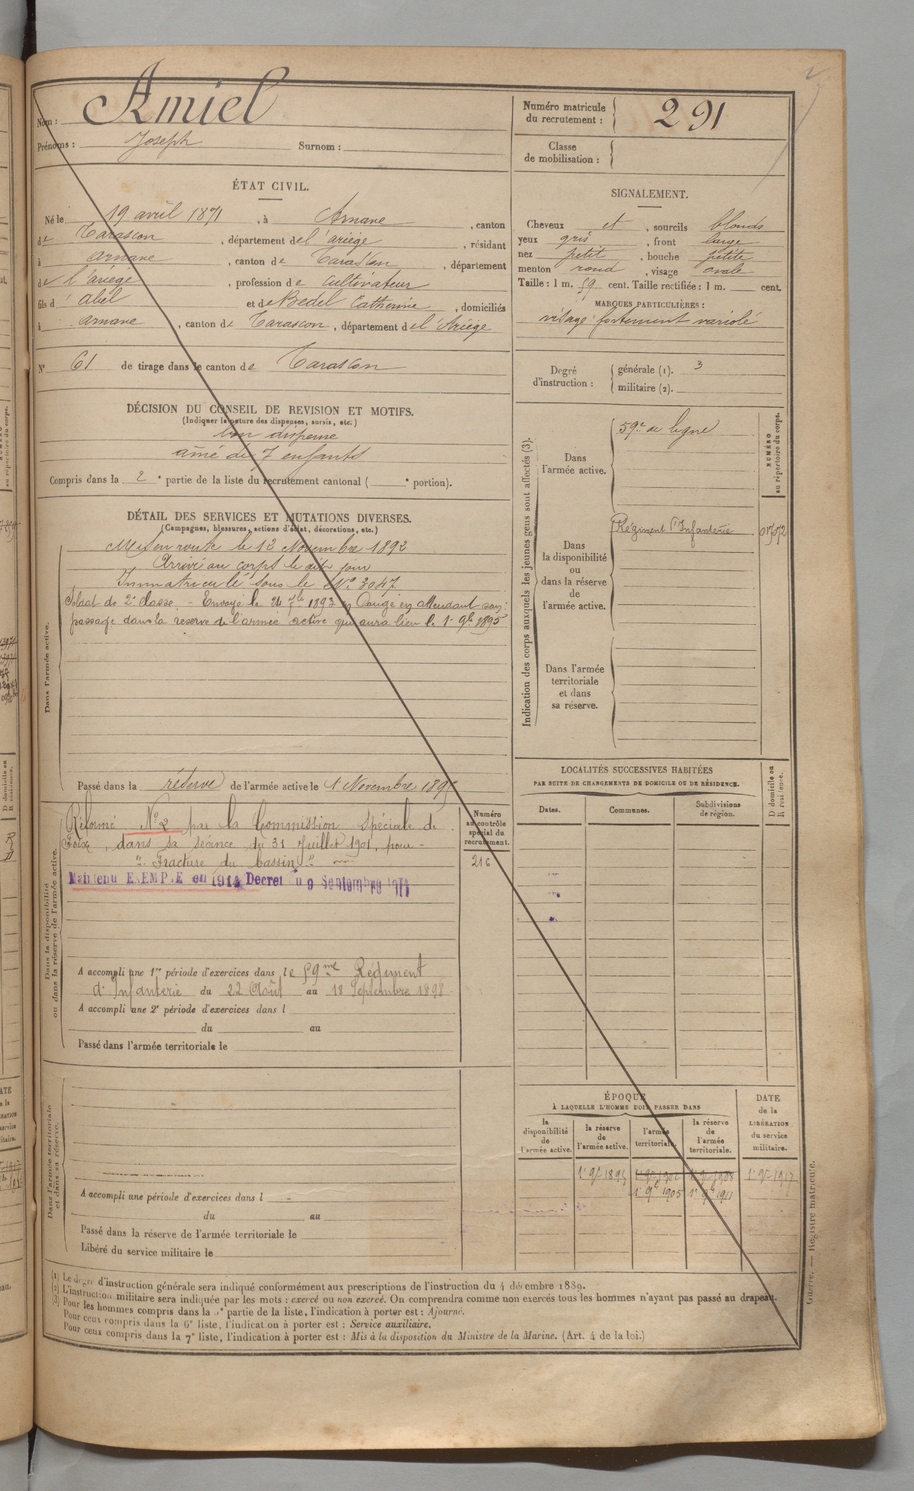 Nom : Amiel
Prénoms : Joseph Surnom :
ÉTAT CIVIL.
Né le 19 avril 1871, à Arnave, canton
de Tarascon, département de l'ariège, résidant
à Arnave, canton de Tarascon, département
de l'ariège, profession de cultivateur
fils d' Abel et de Bedel Catherine, domiciliés
à arnave, canton de Tarascon, département de l'Ariège
N° 61 de tirage dans le canton de Tarascon
DÉCISION DU CONSEIL DE REVISION ET MOTIFS.
(Indiquer la nature des dispenses, sursis, etc.)
bon dispense
ainé de 7 enfants
Compris dans la 2e partie de la liste du recrutement cantonal ( e portion).
DÉTAIL DES SERVICES ET MUTATIONS DIVERSES.
(Campagnes, blessures, actions d'éclat, décorations, etc.)
Dans l'armée active.
Mis en route le 12 Novembre 1892
Arrivé au corps le dit jour
Immatriculé sous le N° 3047
Soldat de 2e classe. - Envoyé le 24 7bre 1893 en Congé en attendant son
passage dans la reserve de l'armée active qui aura lieu le 1er 9bre 1895
Passé dans la réserve de l'armée active le 1 Novembre 1895
Dans la disponibilité
ou dans la réserve de l'armée active.
Numéro
au contrôle
spécial du
recrutement.
216
Réformé N°2 par la Commission Spéciale de
Foix, dans sa séance du 31 Juillet 1901, pour
"Fracture du bassin"
Maintenu EXEMPTÉ en 1914 Decret du 9 Septembre 1914
A accompli une 1re période d'exercices dans le 59me Régiment
d'Infanterie du 22 Août au 18 Septembre 1898
A accompli une 2e période d'exercices dans l
du au
Passé dans l'armée territoriale le
Dans l'armée territoriale
et dans sa réserve.
A accompli une période d'exercices dans l
du au
Passé dans la réserve de l'armée territoriale le
Libéré du service militaire le
Numéro matricule
du recrutement : 291
Classe
de mobilisation :
SIGNALEMENT.
Cheveux et, sourcils blonds
yeux gris, front large
nez petit, bouche petite
menton rond, visage ovale
Taille : 1 m. 59 cent. Taille rectifiée : 1 m. cent.
MARQUES PARTICULIÈRES :
visage fortement variolé
Degré
d'instruction :
générale (1). 3
militaire (2).
Indication des corps auxquels les jeunes gens sont affectés (3).
NUMÉRO
au répertoire du corps.
Dans
l'armée active.
59e de ligne
Dans
la disponibilité
ou
dans la réserve
de
l'armée active.
Régiment d'Infanterie
Dans l'armée
territoriale
et dans
sa réserve.
LOCALITÉS SUCCESSIVES HABITÉES
PAR SUITE DE CHANGEMENTS DE DOMICILE OU DE RÉSIDENCE.
D domicile ou
R résidence.
Dates. Communes. Subdivisions
de région.
ÉPOQUE
À LAQUELLE L'HOMME DOIT PASSER DANS
DATE
de la
LIBÉRATION
du service
militaire.
la
disponibilité
de
l'armée active.
la réserve
de
l'armée active.
l'armée
territoriale.
la réserve
de
l'armée
territoriale.
1er 9bre 1895 1er 9bre 1908 1er 9bre 1917
1er 9bre 1905 1er 9bre 1911
(1) Le degré d'instruction générale sera indiqué conformément aux prescriptions de l'instruction du 4 décembre 1889.
(2) L'instruction militaire sera indiquée par les mots : exercé ou non exercé. On comprendra comme non exercés tous les hommes n'ayant pas passé au drapeau.
(3) Pour les hommes compris dans la 5e partie de la liste, l'indication à porter est : Ajourné.
Pour ceux compris dans la 6e liste, l'indication à porter est : Service auxiliaire.
Pour ceux compris dans la 7e liste, l'indication à porter est : Mis à la disposition du Ministre de la Marine. (Art. 4 de la loi.)
Guerre. — Registre matricule.